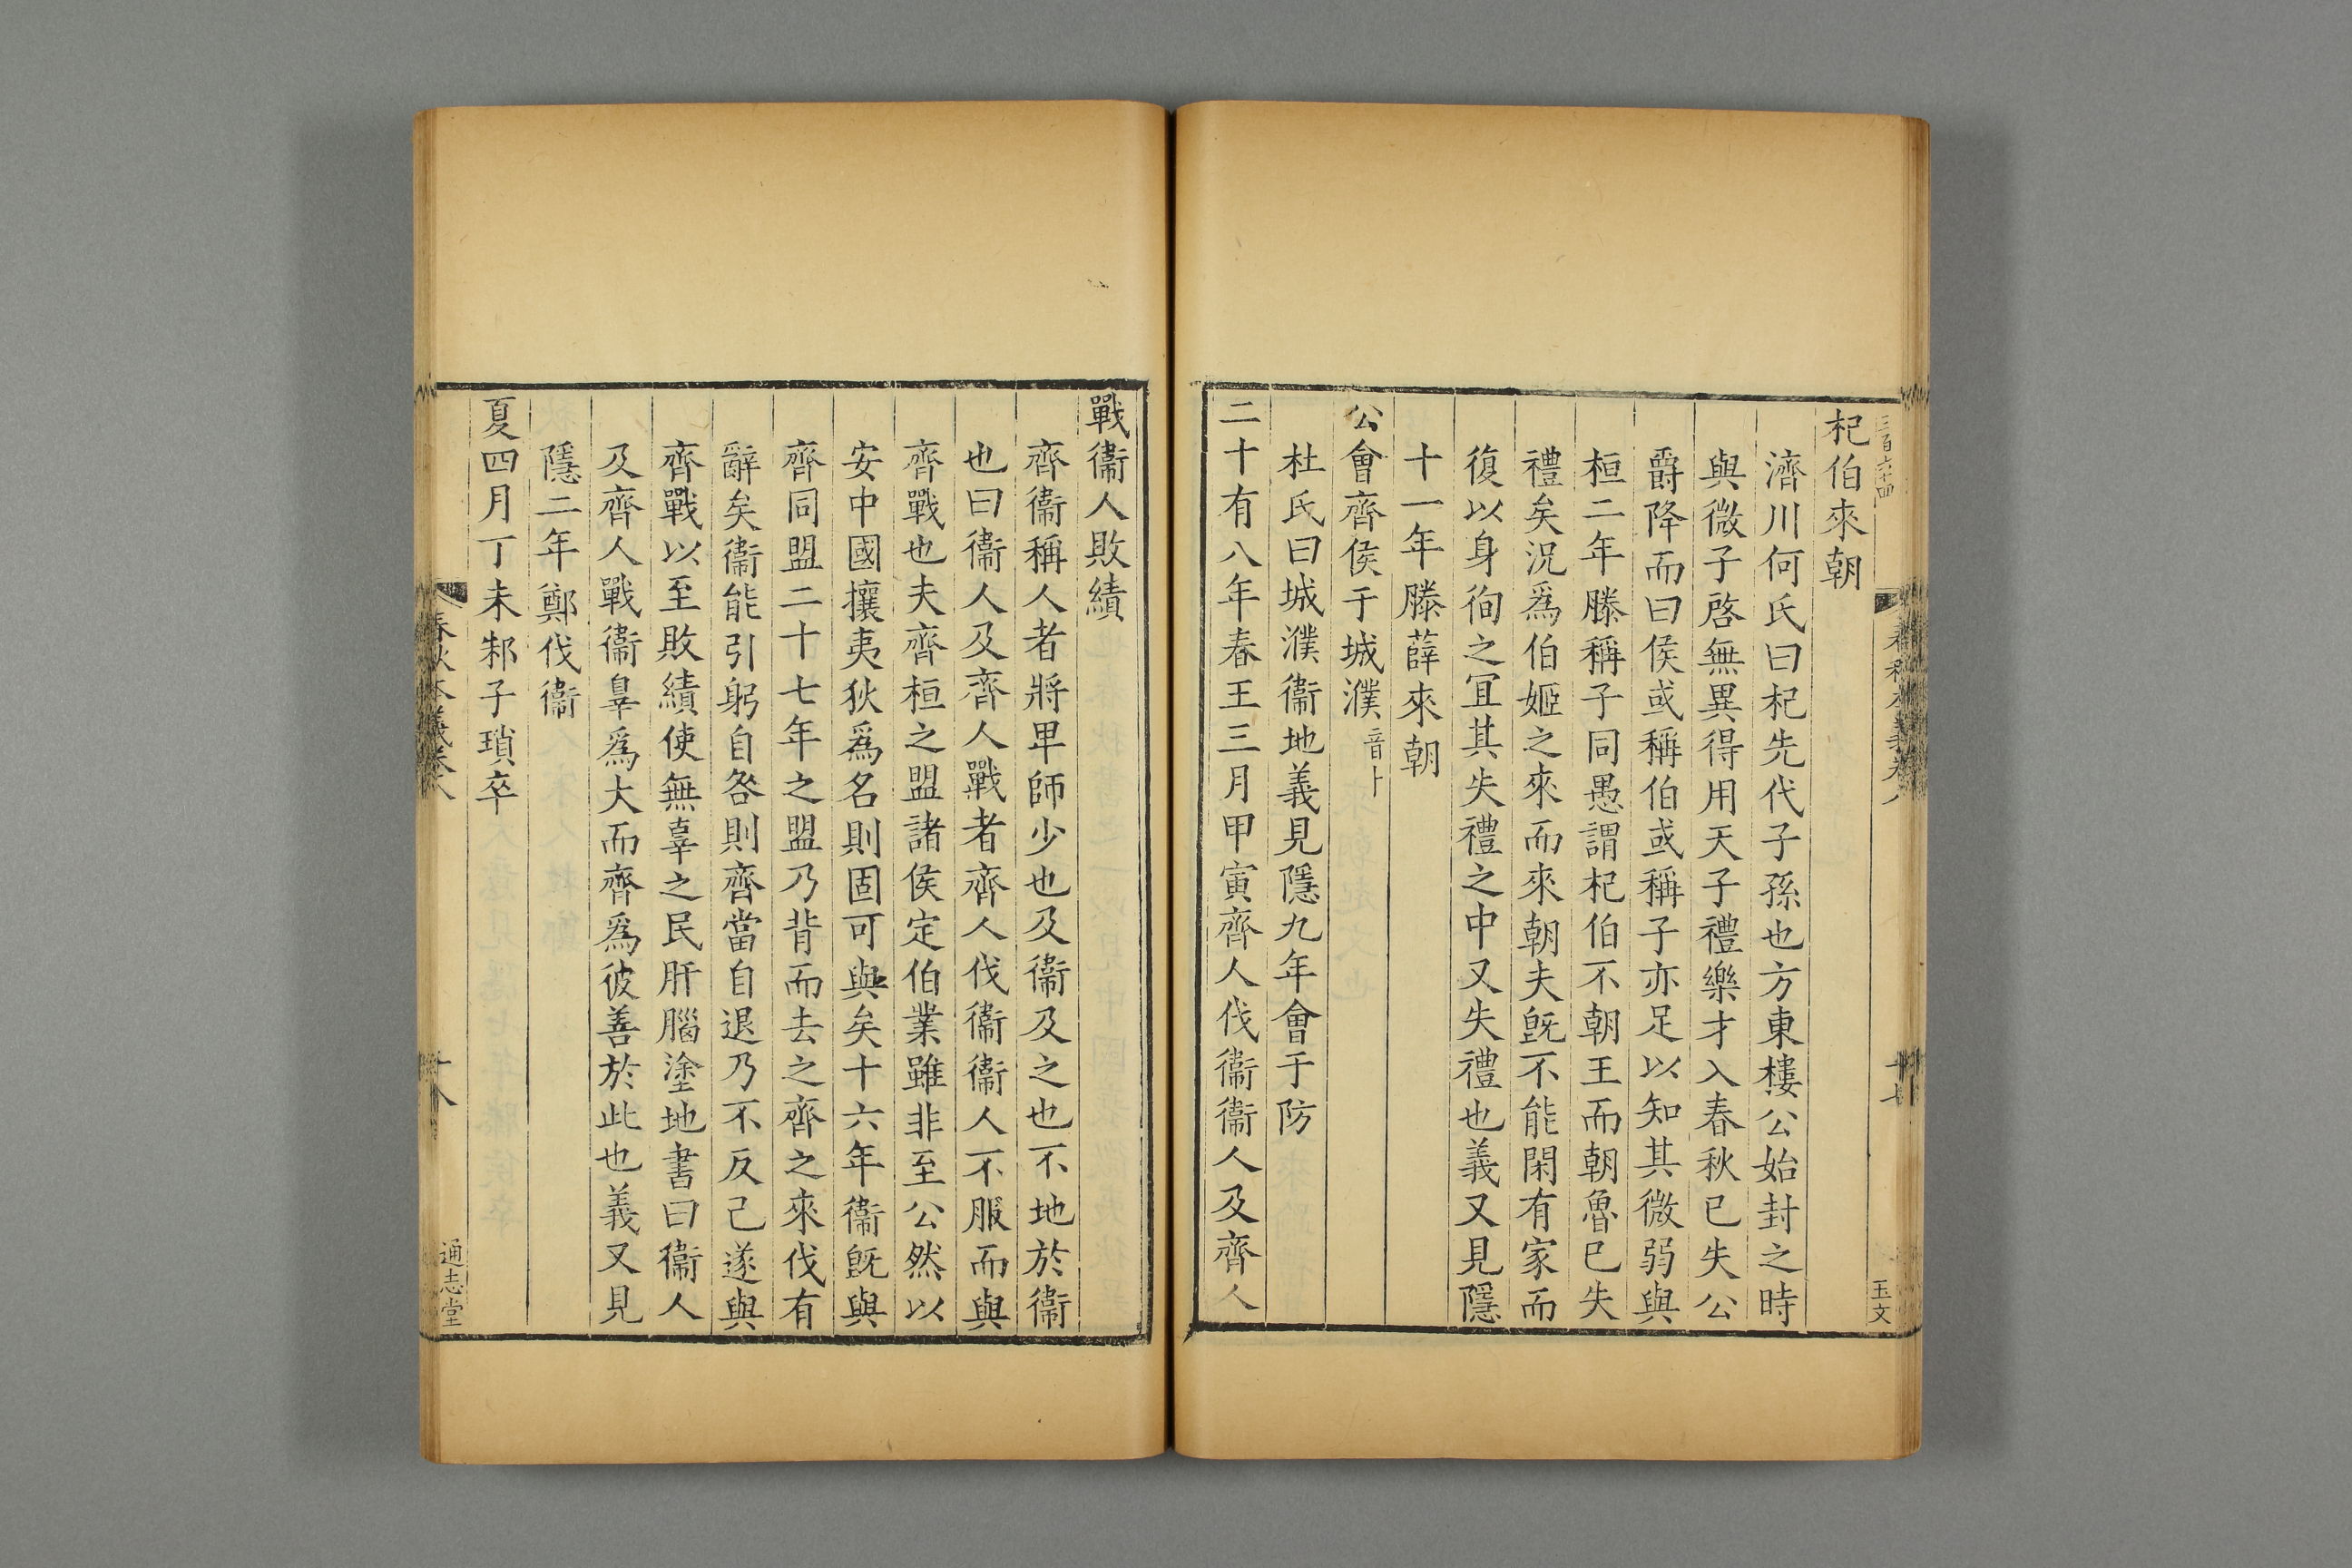 杞伯來朝
濟川何氏曰杞先代子孫也方東樓公始封之時
與微子啓無異得用天子禮樂才入春秋已失公
爵降而曰侯或稱伯或稱子亦足以知其微弱與
桓二年滕稱子同愚謂杞伯不朝王而朝魯已失
禮矣況爲伯姬之來而來朝夫旣不能閑有家而
復以身徇之冝其失禮之中又失禮也義又見隱
十一年滕薛來朝
公會齊侯于城濮音卜
杜氏曰城濮衞地義見隱九年會于防
二十有八年春王三月甲寅齊人伐衞衞人及齊人
戰衞人敗績
齊衞稱人者將卑師少也及衞及之也不地於衞
也曰衞人及齊人戰者齊人伐衞衞人不服而與
齊戰也夫齊桓之盟諸侯定伯業雖非至公然以
安中國攘夷狄爲名則固可與矣十六年衞旣與
齊同盟二十七年之盟乃背而去之齊之來伐有
辭矣衞能引躬自咎則齊當自退乃不反己遂與
齊戰以至敗績使無辜之民肝腦塗地書曰衞人
及齊人戰衞辠爲大而齊爲彼善於此也義又見
隱二年鄭伐衞
夏四月丁未邾子瑣卒
春秋本義卷八
十八
通志堂
三百六十四
春秋本義卷八
十七
玉文